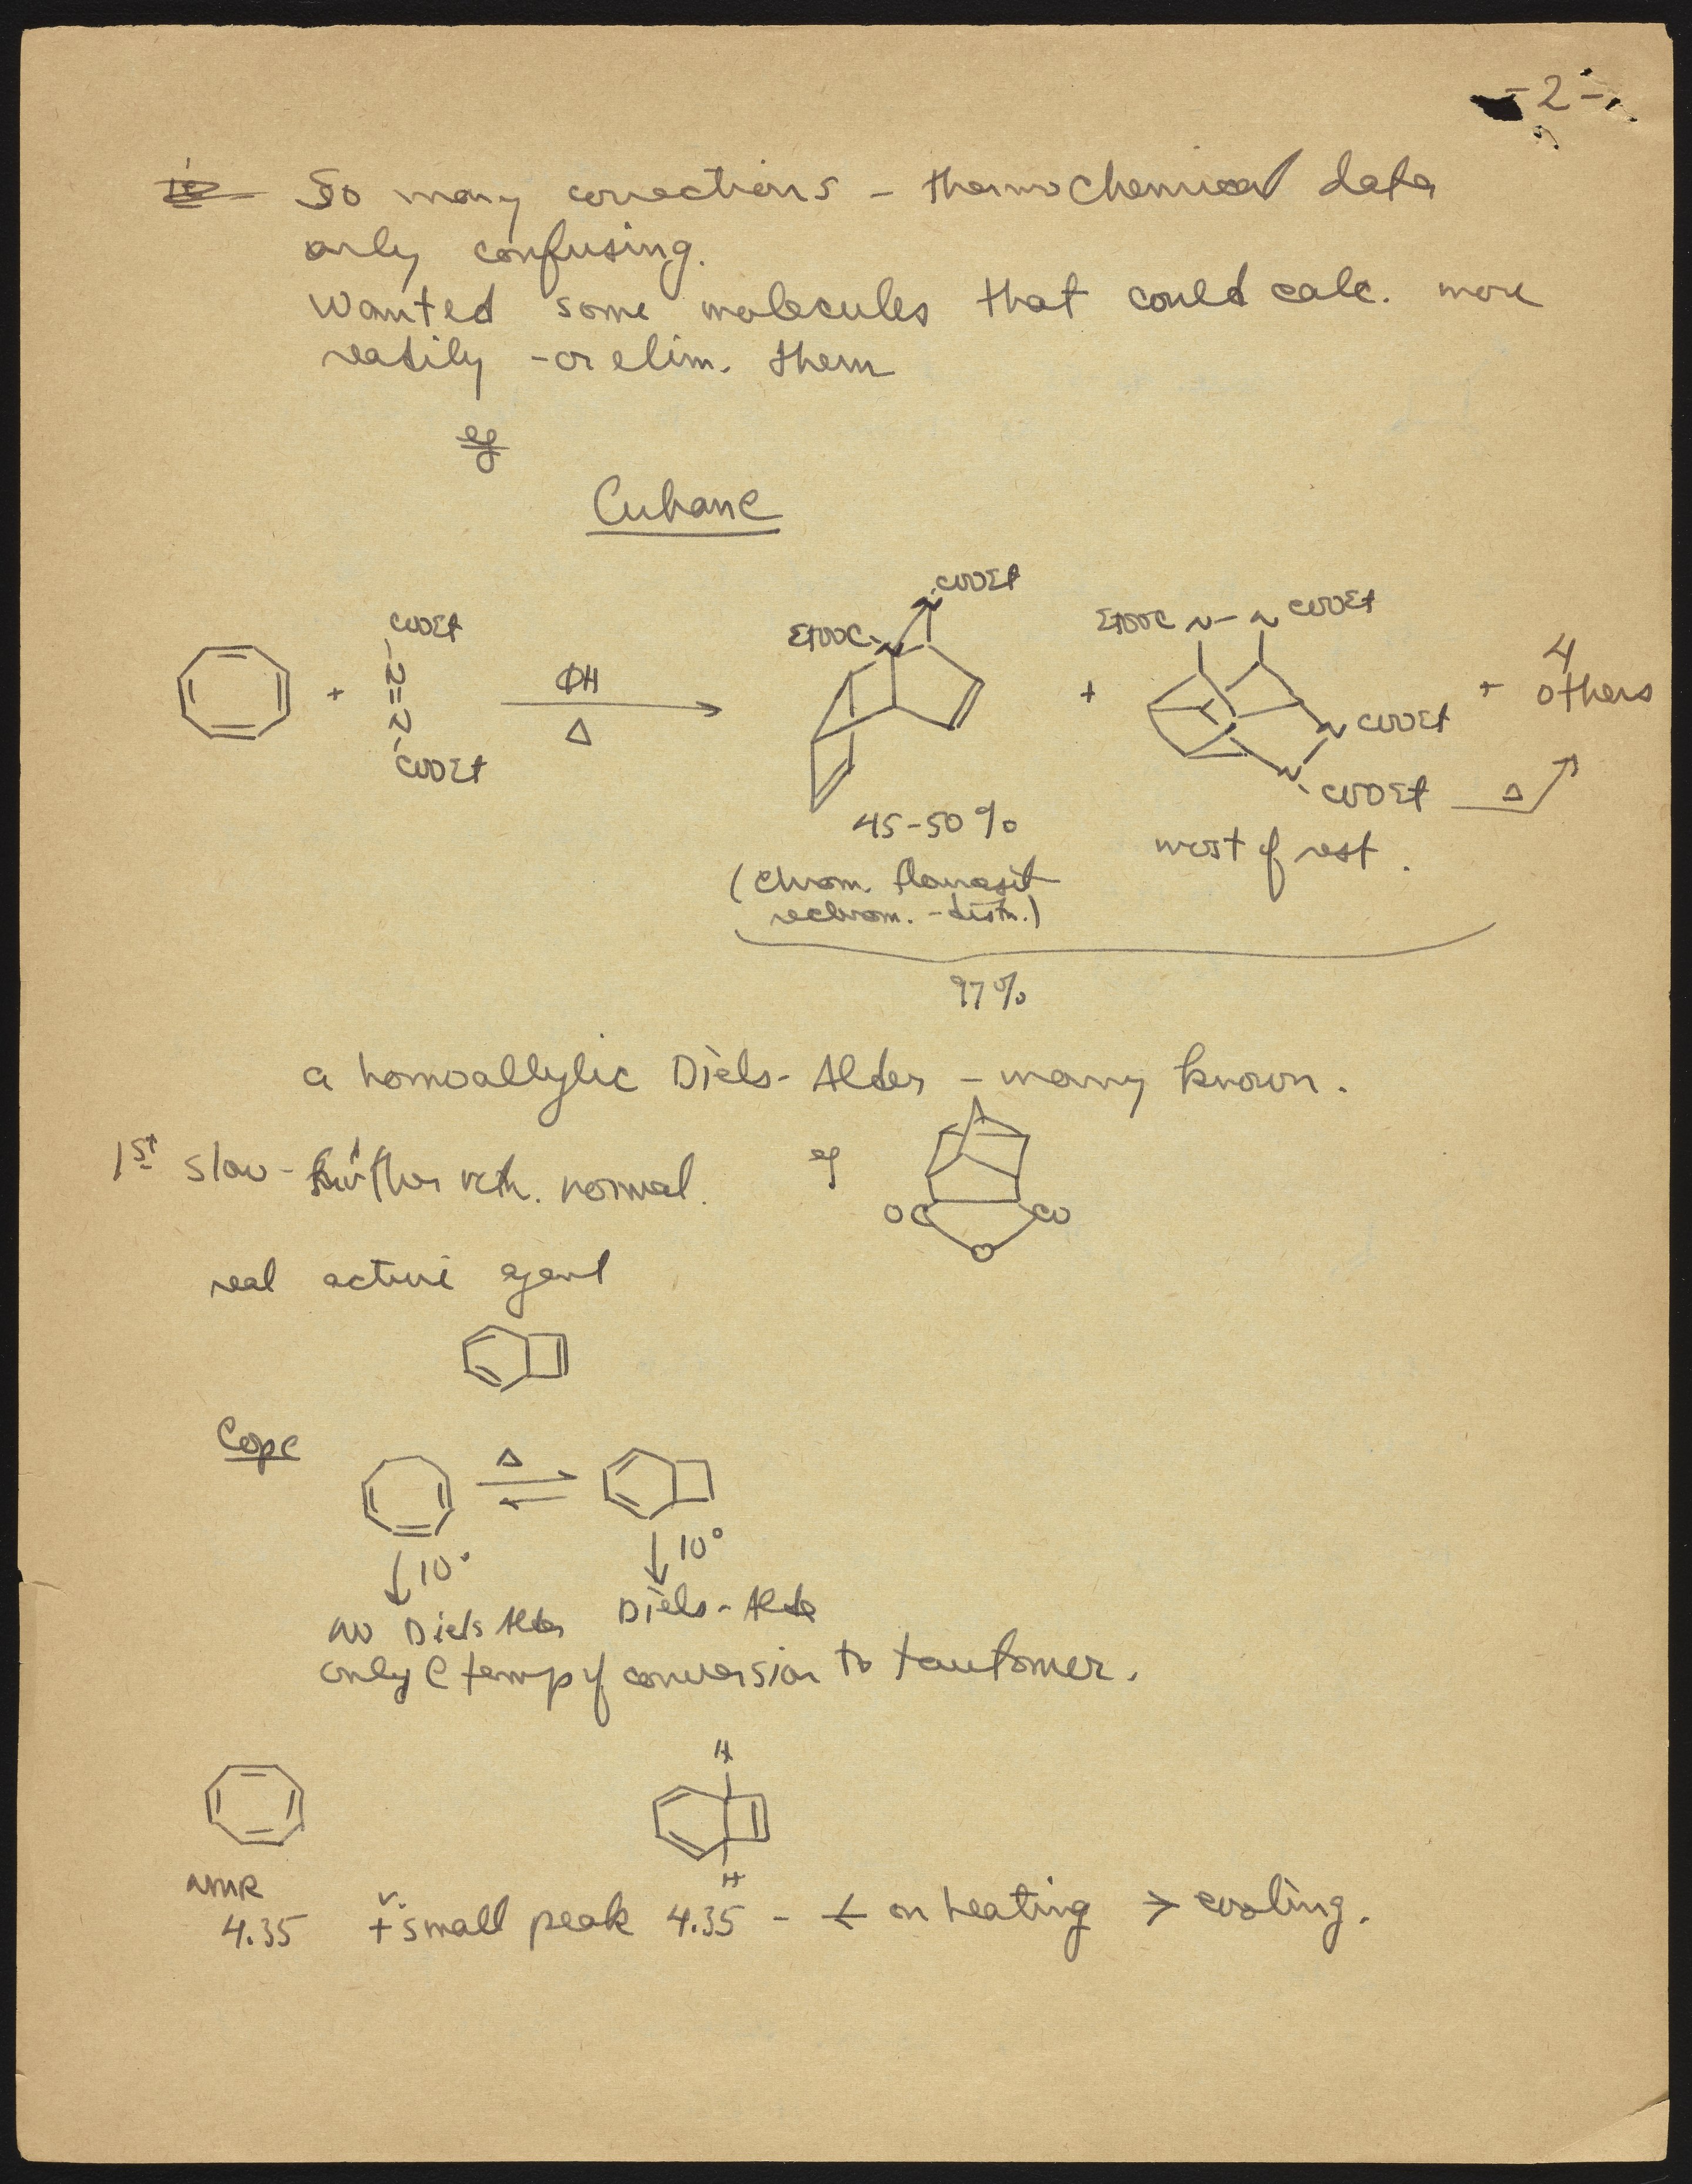 - 2 -
So many corrections - thermochemical data
only confusing.
Wanted some molecules that could calc. more
readily - or elim. them
eg
Cubane
COOEt
N=N
COOEt
+
ΦH
Δ
EtOOC-N
N COOEt
+
EtOOC N-N COOEt
N COOEt
N COOEt
Δ
+ 4 others
45-50%
most of rest.
(chrom. florasil
rechrom. - distn.)
97%
a homoallylic Diels-Alder - many known.
1st slow - further rctn. normal.
eg
OC CO
O
real active agent
Cope
Δ
10°
10°
no Diels Alder
Diels-Alder
only @ temp of conversion to tautomer.
H
H
NMR
4.35
+ v. small peak 4.35 - < on heating > cooling.